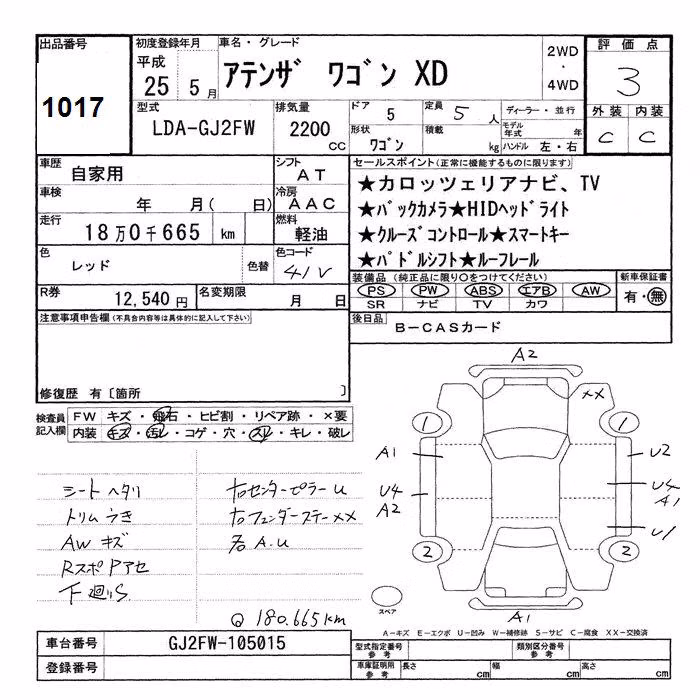 出品番号 初度登録年月 車名・グレード 2WD ・ 4WD 評価点
1017 平成 25 5月 アテンザ ワゴン XD 3
型式 排気量 ドア 5 定員 5人 ディーラー・並行 外装 内装
LDA-GJ2FW 2200 CC 形状 ワゴン 積載 kg モデル年式 年 ハンドル 左・右 C C
車歴 自家用 シフト AT セールスポイント(正常に機能するものに限ります)
車検 年 月( 日) 冷房 AAC ★カロッツェリアナビ、TV
走行 18万0千665 km 燃料 軽油 ★バックカメラ★HIDヘッドライト
色 レッド 色替 色コード 41V ★クルーズコントロール★スマートキー
★パドルシフト★ルーフレール
R券 12,540円 名変期限 月 日 装備品(純正品に限り○をつけてください) 新車保証書
PS PW ABS エアB AW 有・無
SR ナビ TV カワ
注意事項申告欄(不具合内容等は具体的に記入して下さい) 後日品 B-CASカード
修復歴 有〔箇所 〕
検査員記入欄 FW キズ・飛石・ヒビ割・リペア跡・×要
内装 キズ・汚レ・コゲ・穴・スレ・キレ・破レ
A2
XX
1 1
A1 U2
U4 U4
A2 A1
U1
2 2
A1
スペア
シートヘタリ 右センターピラーU
トリムうき 右フェンダーステーXX
AWキズ 右A.U
RスポPアセ
下廻りS
Q 180.665km
A-キズ E-エクボ U-凹み W-補修跡 S-サビ C-腐食 XX-交換済
車台番号 GJ2FW-105015 型式指定番号 参考 類別区分番号 参考
登録番号 車庫証明用 参考 長さ cm 幅 cm 高さ cm